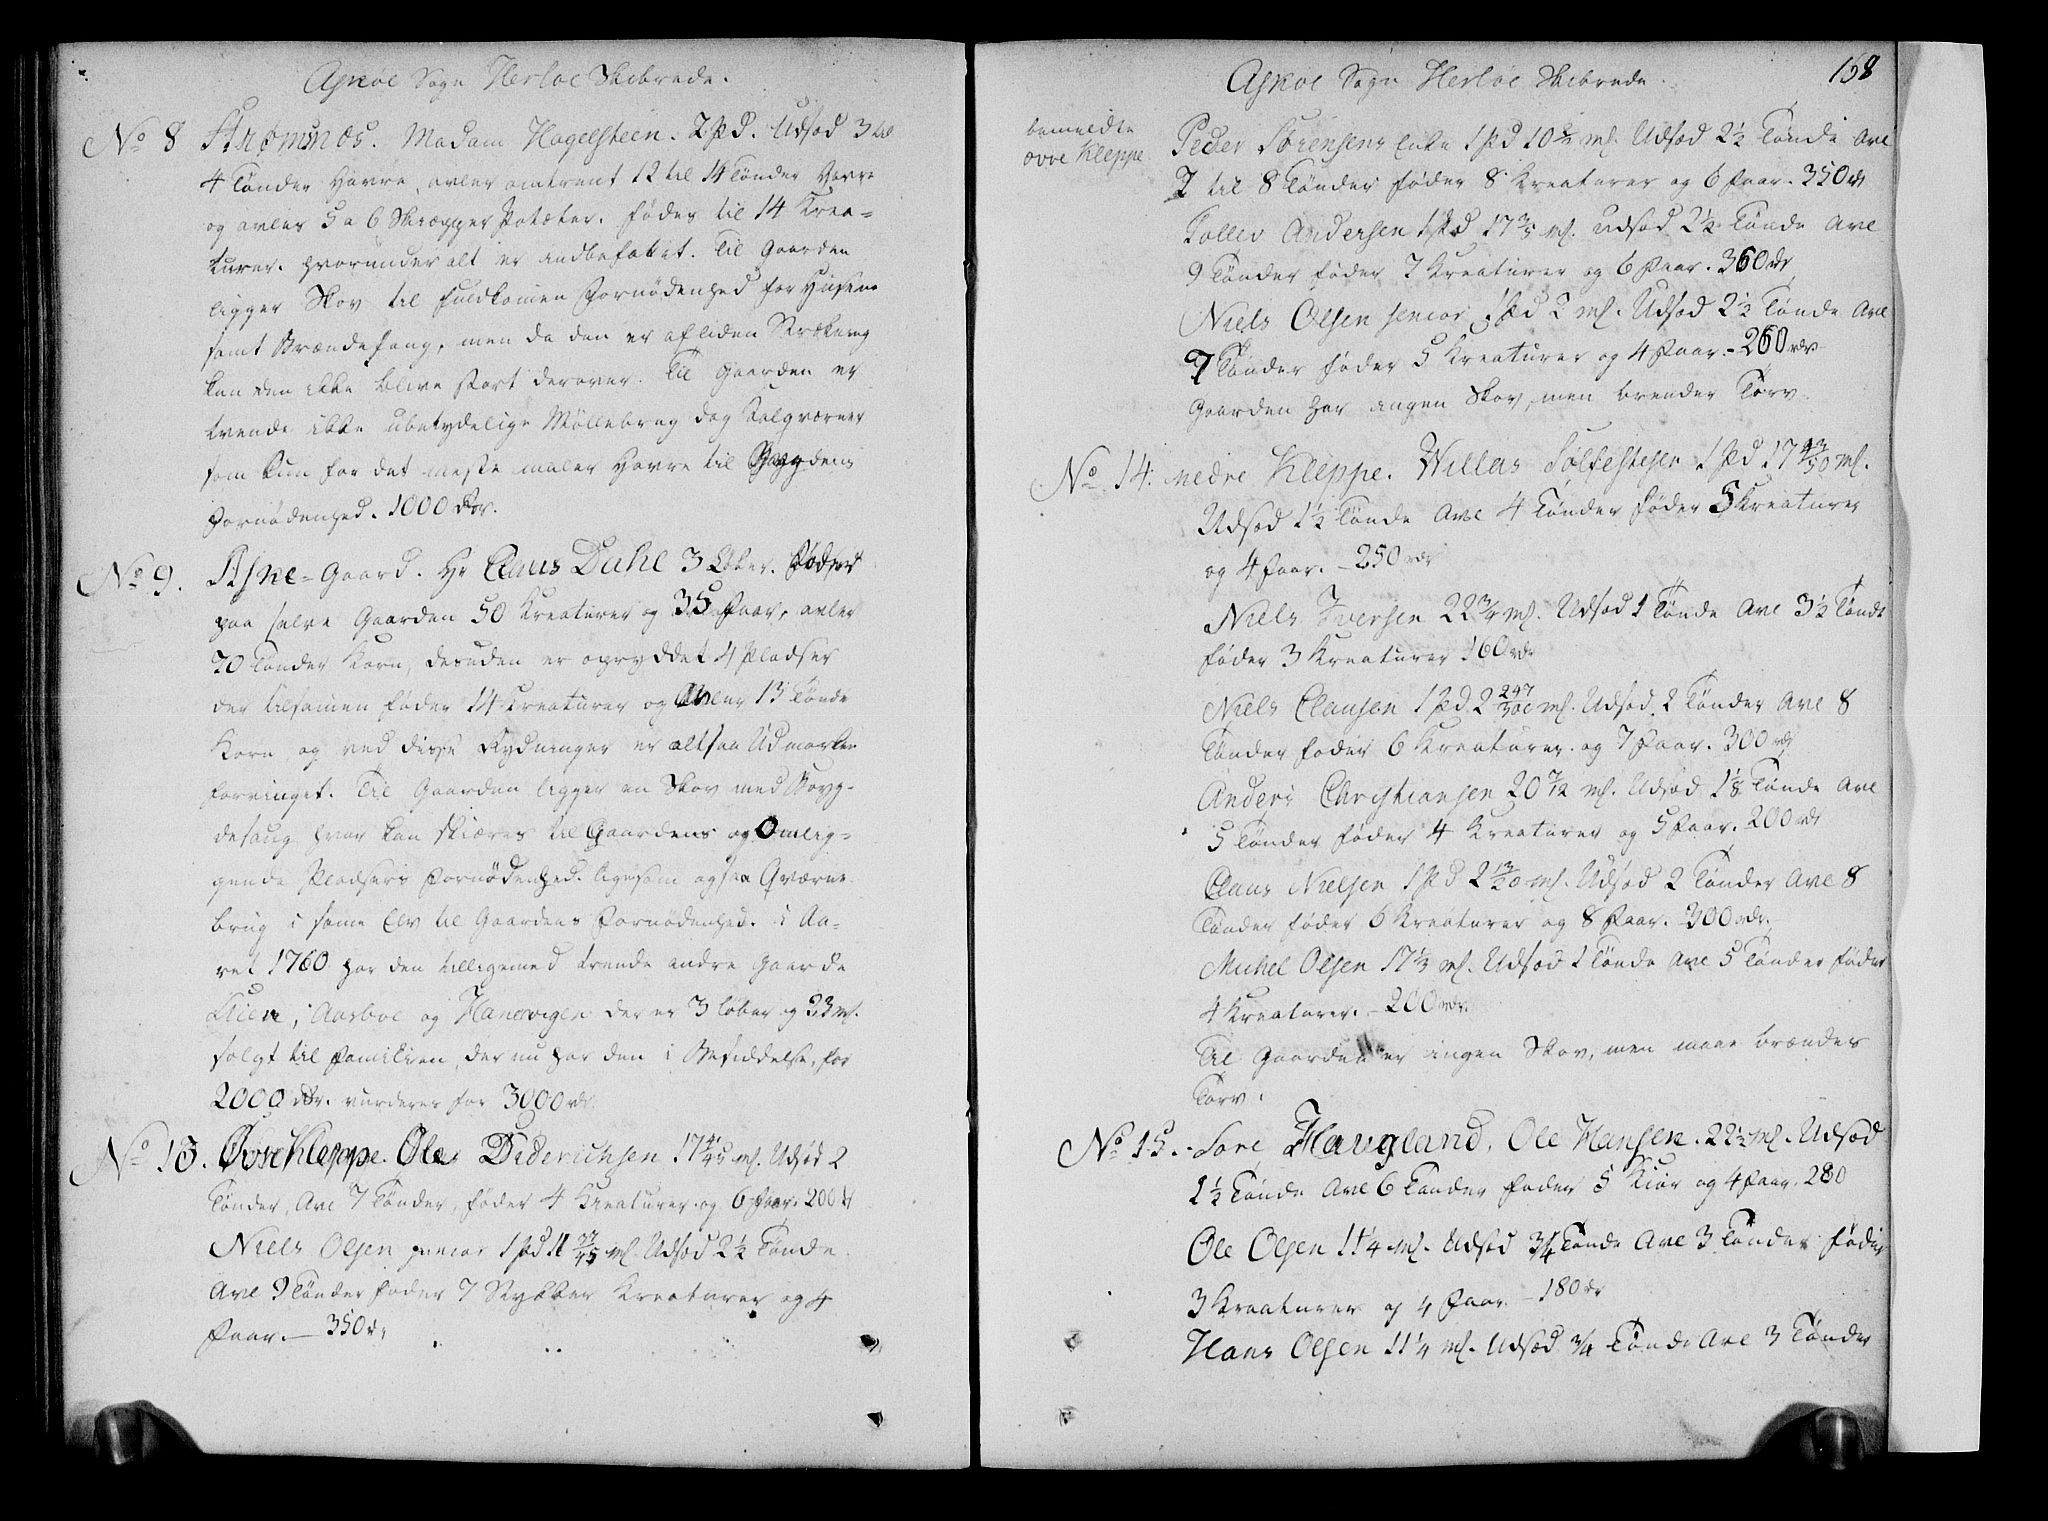 Askøe Sogn Herløe Skibrede.
No 8 Strømsnæs. Madam Hagelsteen. 2 Pd. Udsæd 3 til
4 Tønder Havre, avler omtrent 12 til 14 Tønder Havre
og avler 5 a 6 Skiæpper Potæter. føder til 14 Krea=
turer. hvorunder alt er indbefattet. Til Gaarden
ligger Skov til fuldkomen Fornødenhed for Husene
samt Brændefang, men da den er af liden Strækning
kan den ikke blive stort derover. Til Gaarden er
tvende ikke ubetydelige Møllebrug dog Kalqværner
som kun for det meste maler Havre til Bøygdens
Fornødenhed. 1000 rdr.
No 9. Aske=Gaard. Hr Claus Dahl 3 Løber. Føder
paa selve Gaarden 50 Kreaturer og 35 Faar, avler
70 Tønder Korn, desuden er opryddet 4 Pladser
der tilsamen føder 14 Kreaturer og avler 13 Tønde
Korn, og ved disse Rydninger er altsaa Udmarken
forringet. Til Gaarden ligger en Skov med Bøyg=
desaug hvor kan skiæres til Gaardens og Omlig=
gende Pladsers Fornødenhed. ligesom ogsaa Qværne
brug i same Elv til Gaardens Fornødenhed. i Aa=
ret 1760 har den tilligemed trende andre Gaarde
Lien, Aasboe og Hanevigen der er 3 løber og 23 mk.
solgt til Familien, der nu har den i Besiddelse, for
2000 rdr. vurderes for 3000 rdr.
No 13. Øvre Kleppe. Ole Diderichsen 17 4/45 mk. Udsæd 2
Tønder, Avl 7 Tønder, føder 4 Kreaturer og 6 Faar. 200 r
Niels Olsen junior 1 Pd 11 27/45 mk. Udsæd 2 1/2 Tønde
Avl 9 Tønder føder 7 Stykker Kreaturer og 4
Faar. — 350 r.
Askøe Sogn Herløe Skibrede.
168
bemeldte
øvre Kleppe
Peder Sørensens Enke 1 Pd 10 mk. Udsæd 2 1/2 Tønde Avl
7 til 8 Tønder føder 8 Kreaturer og 6 Faar. 350 r
Tollev Andersen 1 Pd 17 3/5 mk. udsæd 2 1/2 Tønde Avl
9 Tønder føder 7 Kreaturer og 6 Faar. 360 rdr
Niels Olsen senior 1 Pd 2 mk. Udsæd 2 1/2 Tønde Avl
7 Tønder føder 5 Kreaturer og 4 Faar. - 260 rdr
Gaarden har ingen Skov, men brender Tørv.
No 14. nedre Kleppe. Willas Solfestesen 1 Pd 17 43/50 mk.
Udsæd 1 1/2 Tønde Avl 4 Tønder føder 5 Kreaturer
og 4 Faar. - 250 rdr
Niels Iversen 22 3/4 mk. Udsæd 1 Tønde Avl 3 1/2 Tønde
føder 3 Kreaturer 160 rdr
Niels Clausen 1 Pd. 2 247/300 mk. Udsæd 2 Tønder Avl 8
Tønder føder 6 Kreaturer. og 7 Faar. 300 rdr
Anders Christiansen 20 7/12 mk. Udsæd 1 1/8 Tønde Avl
5 Tønder føder 4 Kreaturer og 5 Faar. 200 rdr
Claus Nielsen 1 Pd 2 13/20 mk. Udsæd 2 Tønder Avl 8
Tønder føder 6 Kreaturer og 8 Faar. 300 rdr.
Michel Olsen 17 1/3 mk. Udsæd 1 Tønde Avl 5 Tønder føder
4 Kreaturer. - 200 rdr.
Til Gaarden er ingen Skov, men maae brændes
Tørv.
No 15. Sore Haugland, Ole Hansen. 22 1/2 mk. Udsæd
1 1/2 Tønde Avl 6 Tønder føder 5 Kiør og 4 Faar. 280
Ole Olsen 11 1/4 mk. Udsæd 3/4 Tønde Avl 3 Tønder føder
3 Kreaturer og 4 Faar - 180 rdr
Hans Olsen 11 1/4 mk. Udsæd 3/4 Tønde Avl 3 Tønder